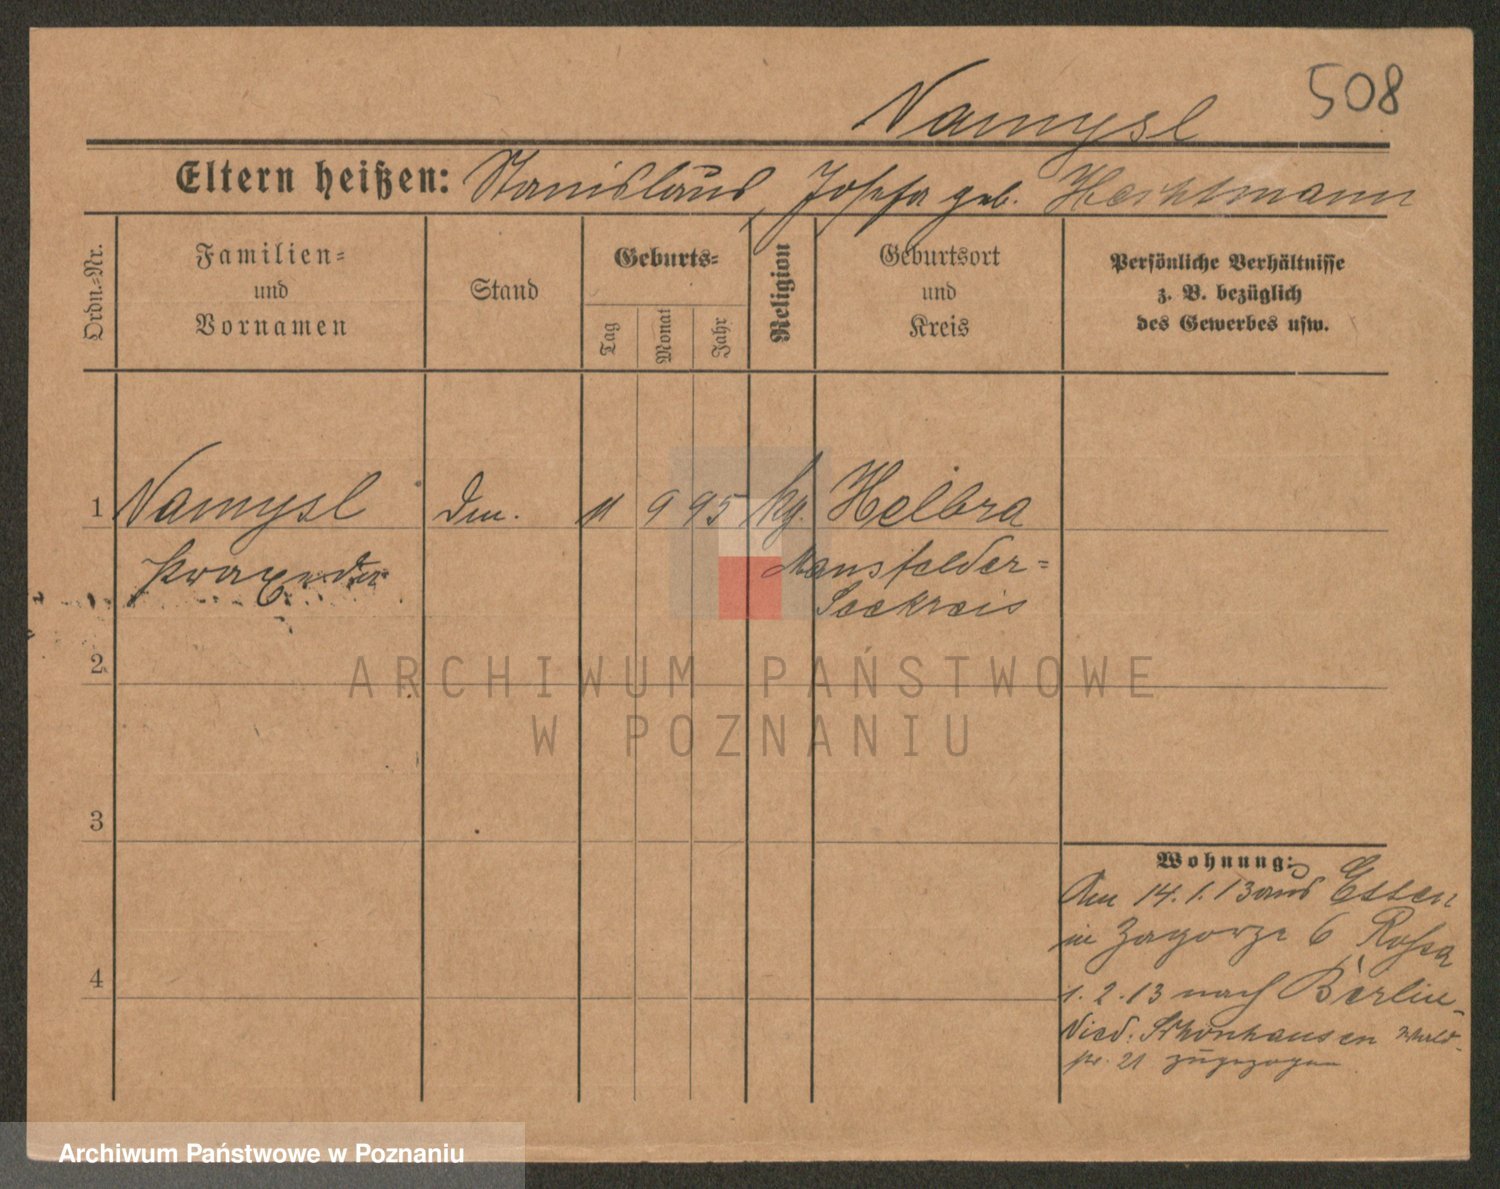 508
Namysl
Eltern heißen: Stanislaus, Josefa geb.
Ordn.-Nr.
Familien-
und
Vornamen
Stand
Geburts-
Tag
Monat
Jahr
Religion
Geburtsort
und
Kreis
Persönliche Verhältnisse
z. B. bezüglich
des Gewerbes usw.
1 Namysl 11 9 95 kg. Helbra
Praxeda Mansfelder-
Seekreis
2
3
4
Wohnung:
Am 14.1.13 aus Essen
in Zagorze 6
1.2.13 nach Berlin-
Nied. Schönhausen Wald-
str. 21 zugezogen
ARCHIWUM PAŃSTWOWE
W POZNANIU
Archiwum Państwowe w Poznaniu